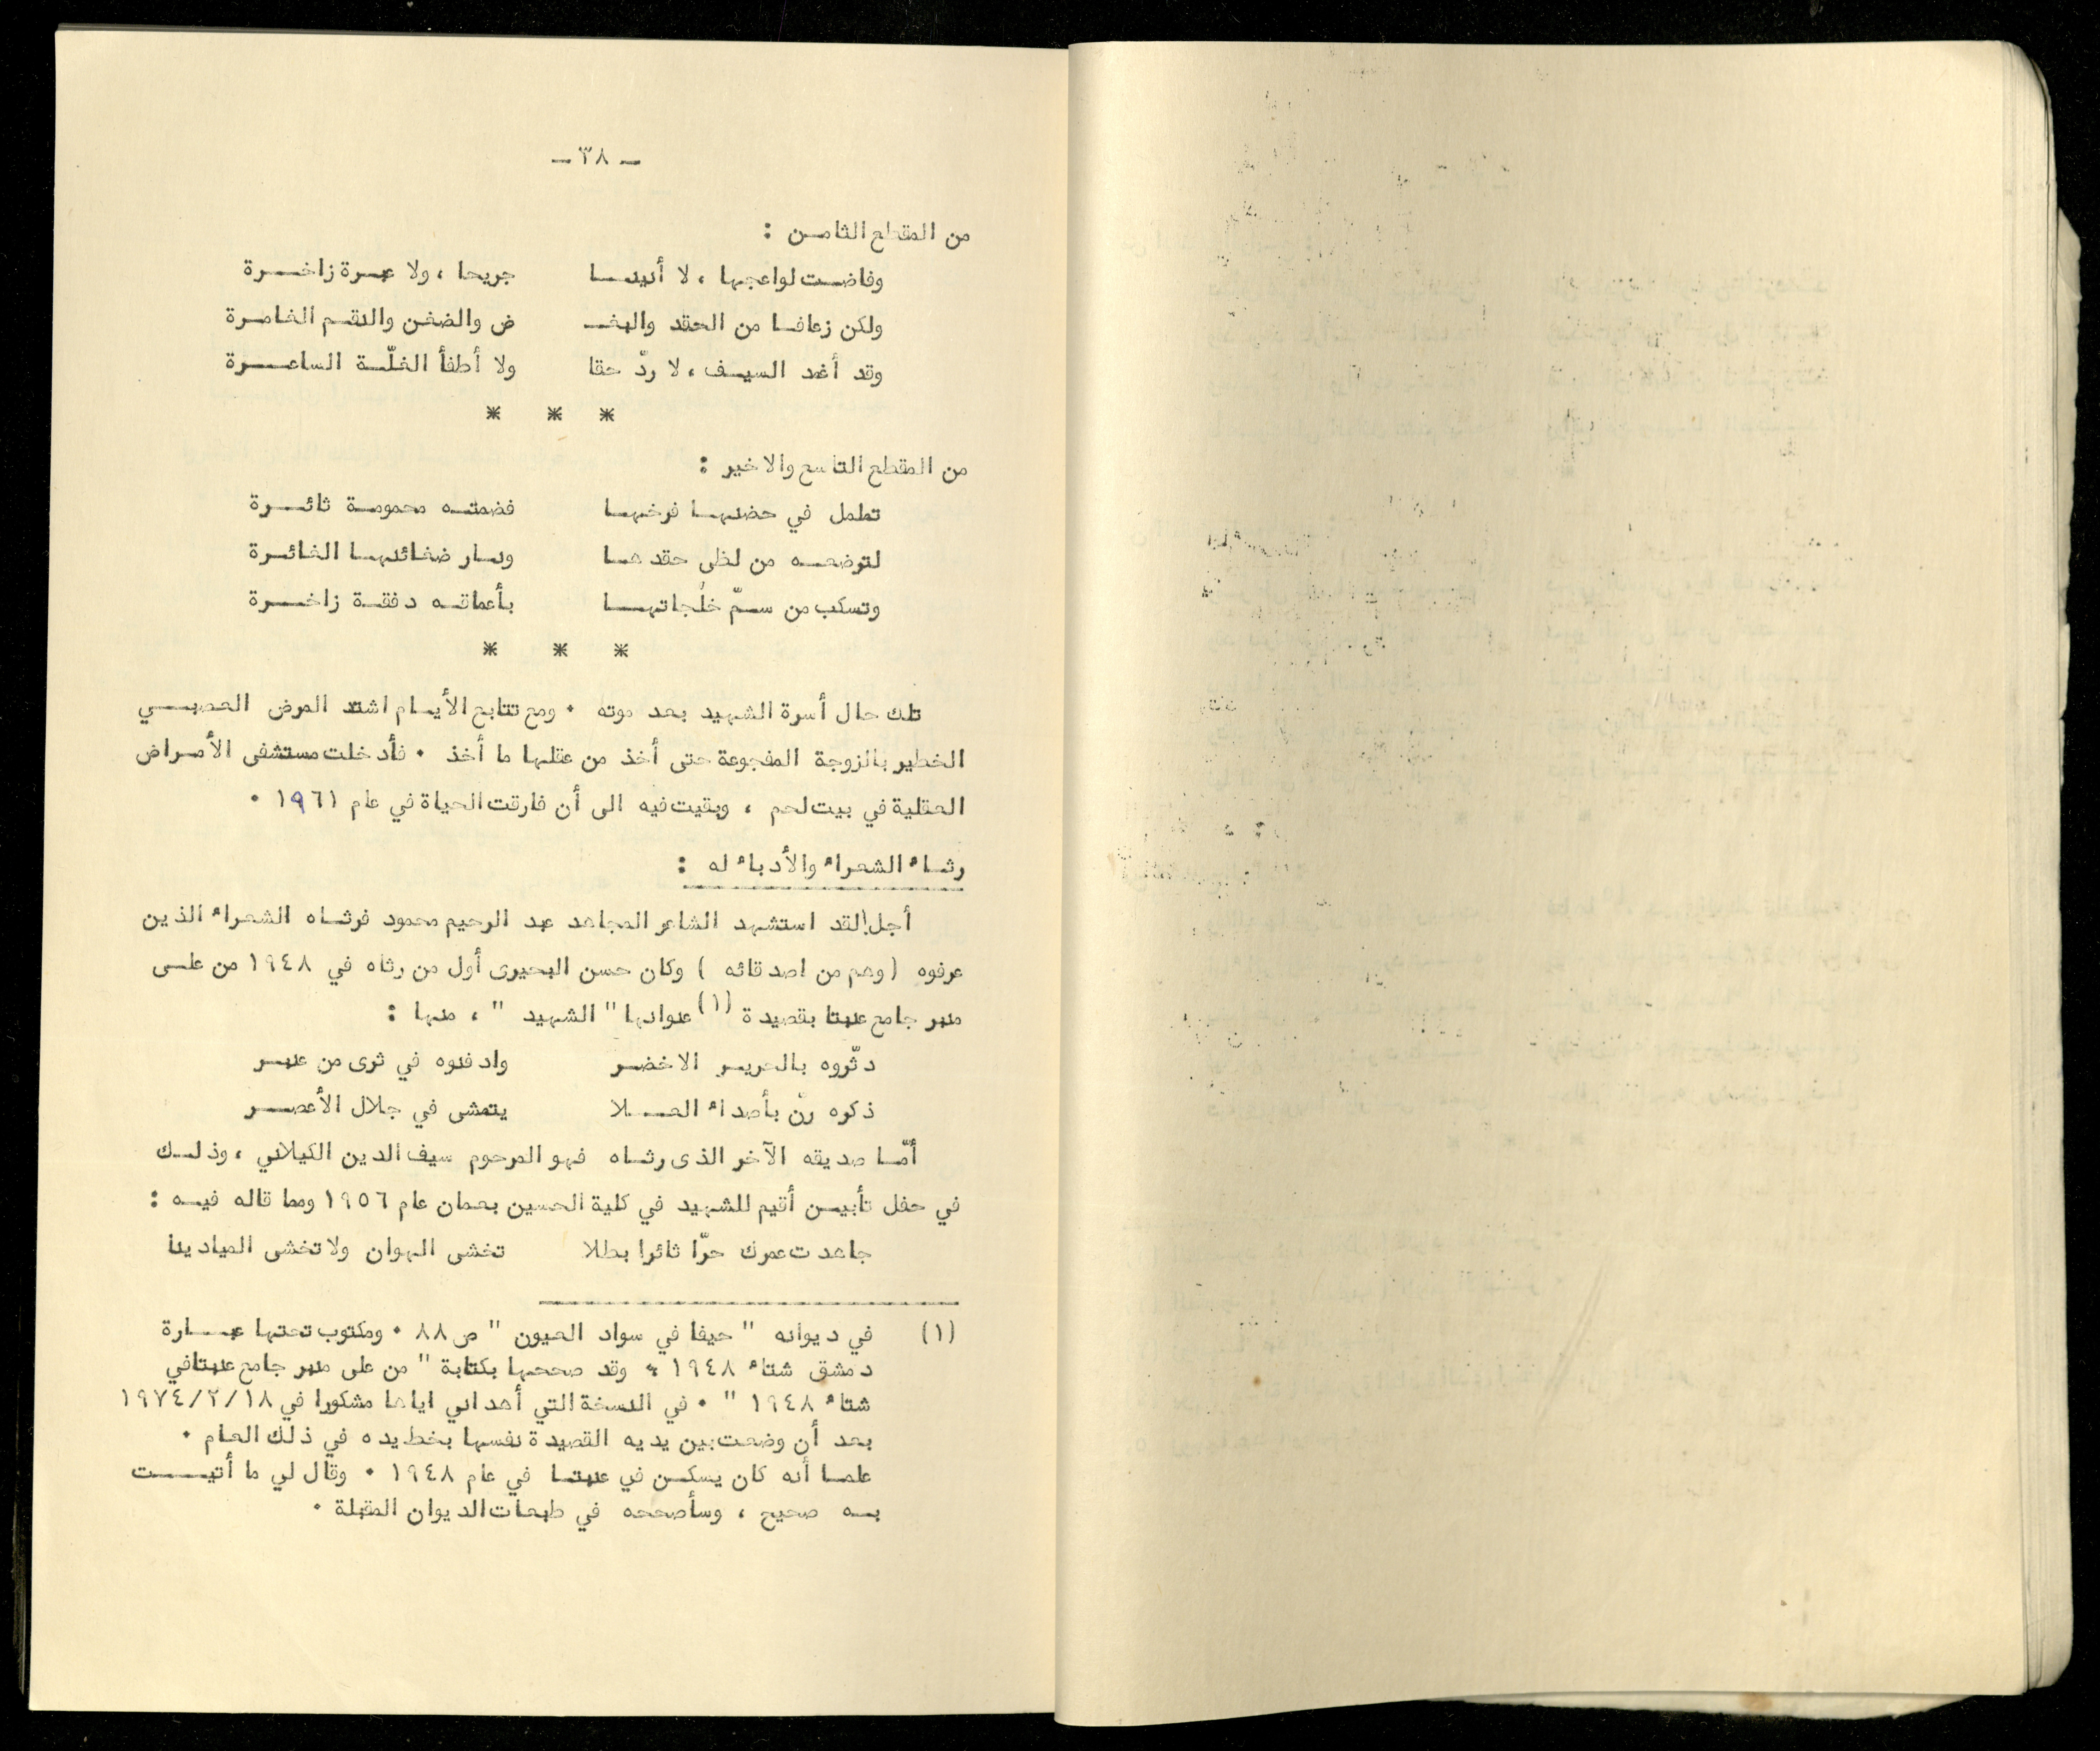 ـ ٣٨ ـ
من المقطع الثامن :
وفاضت لواعجها ، لا أنينا جريحا ، ولا عبرة زاخرة
ولكن زعافا من الحقد والبغـ ض والضغن والنقم الغامرة
وقد أغمد السيف ، لا ردّ حقا ولا أطفأ الغلّة الساعرة
* * *
من المقطع التاسع والاخير :
تململ في حضنها فرخها فضمته محمومة ثائرة
لترضعه من لظى حقدها ونار ضغائنها الغائرة
وتسكب من سمّ خلجاتها بأعماقه دفقة زاخرة
* * *
تلك حال أسرة الشهيد بعد موته ٠ ومع تتابع الأيام اشتد المرض العصبي
الخطير بالزوجة المفجوعة حتى أخذ من عقلها ما أخذ ٠ فأدخلت مستشفى الأمراض
العقلية في بيت لحم ، وبقيت فيه الى أن فارقت الحياة في عام ١٩٦١ ٠
رثاء الشعراء والأدباء له :
أجل! لقد استشهد الشاعر المجاهد عبد الرحيم محمود فرثاه الشعراء الذين
عرفوه (وهم من اصدقائه ) وكان حسن البحيرى أول من رثاه في ١٩٤٨ من على
منبر جامع عنبتا بقصيدة (١) عنوانها " الشهيد " ، منها :
دثّروه بالحرير الاخضر وادفنوه في ثرى من عنبر
ذكره رنّ بأصداء العلا يتمشى في جلال الأعصر
أمّا صديقه الآخر الذى رثاه فهو المرحوم سيف الدين الكيلاني ، وذلك
في حفل تأبين أقيم للشهيد في كلية الحسين بعمان عام ١٩٥٦ ومما قاله فيه :
جاهدت عمرك حرّا ثائرا بطلا تخشى الهوان ولا تخشى الميادينا
(١) في ديوانه " حيفا في سواد العيون " ص ٨٨ ٠ ومكتوب تحتها عبارة
دمشق شتاء ١٩٤٨ " وقد صححها بكتابة " من على منبر جامع عنبتا في
شتاء ١٩٤٨ " ٠ في النسخة التي أهداني اياها مشكورا في ١٩٧٤/٢/١٨
بعد أن وضعت بين يديه القصيدة نفسها بخط يده في ذلك العام ٠
علما أنه كان يسكن في عنبتا في عام ١٩٤٨ ٠ وقال لي ما أتيت
به صحيح ، وسأصححه في طبعات الديوان المقبلة ٠